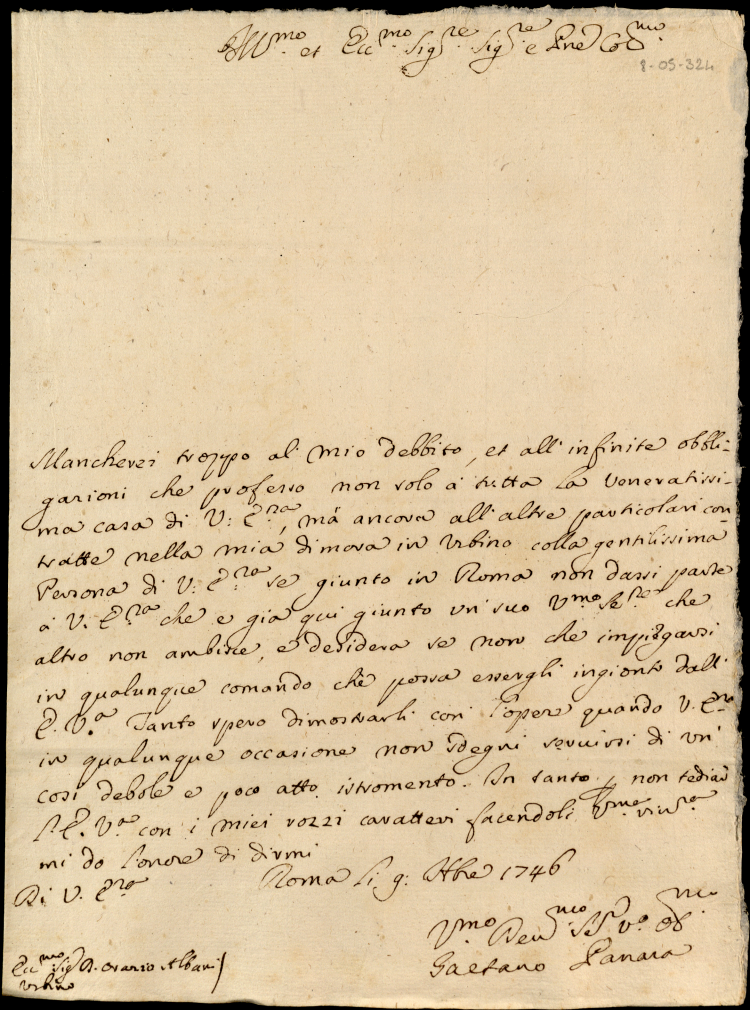 Ill.mo et Ecc.mo Sig.re Sig.re e Pne Col.mo
8-05-324
Mancherei troppo al mio debbito, et all'infinite obbli=
gazioni che professo non solo à tutta la veneratissi=
ma casa di V: E.nza, mà ancora all'altre particolari con=
tratte nella mia dimora in Urbino colla gentilissima
Persona di V: E.nza se giunto in Roma non dassi parte
à V. E.nza che è già qui giunto un suo V.mo Se.re che
altro non ambisce, e desidera se non che impiegarsi
in qualunque comando che possa essergli ingionto dall'
E. V.a Tanto spero dimostrarli con l'opere quando V. E.nza
in qualunque occasione non sdegni servirsi di un'
così debole e poco atto istromento. In tanto p non tediar
l'E. V.a con i miei rozzi caratteri facendoli V.ma riv.za
mi do l'onore di dirmi
Di V. E.nza Roma li 9: 1746
V.mo Dev.mo V.o Ob.mo
Gaetano Panara
Ecc.mo Sig. D. Orazio Albani
Urbino